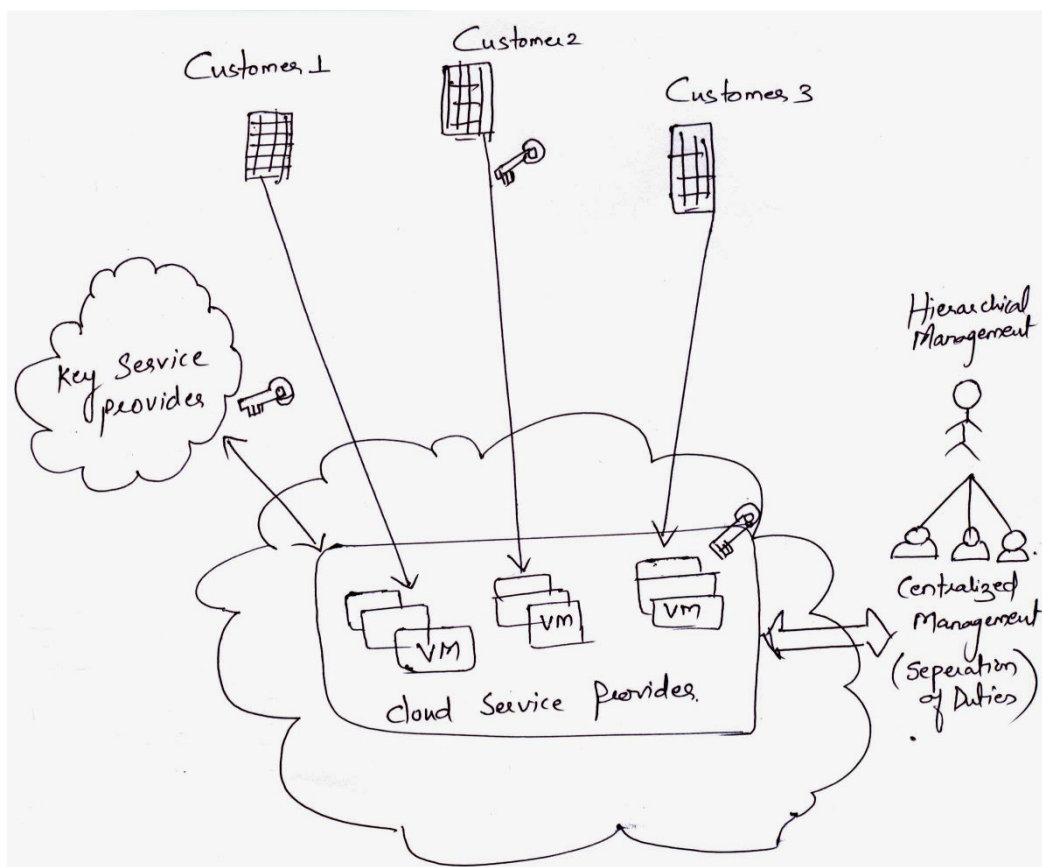 Customer 1
Customer 2
Customer 3
Key Service
provider
Hierarchical
Management
VM
VM
VM
Cloud Service Provider
Centralized
Management
(Seperation
of Duties)